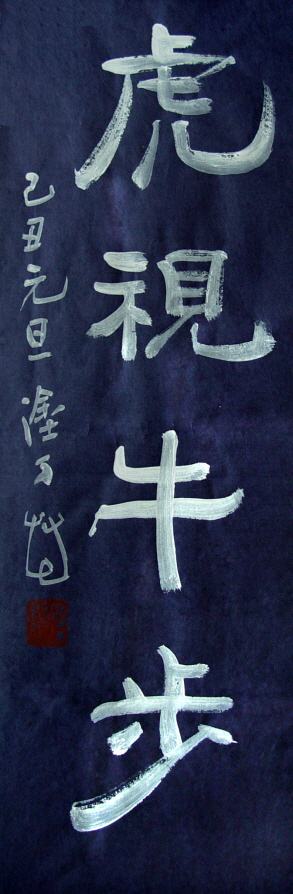 虎視牛步
己丑元旦